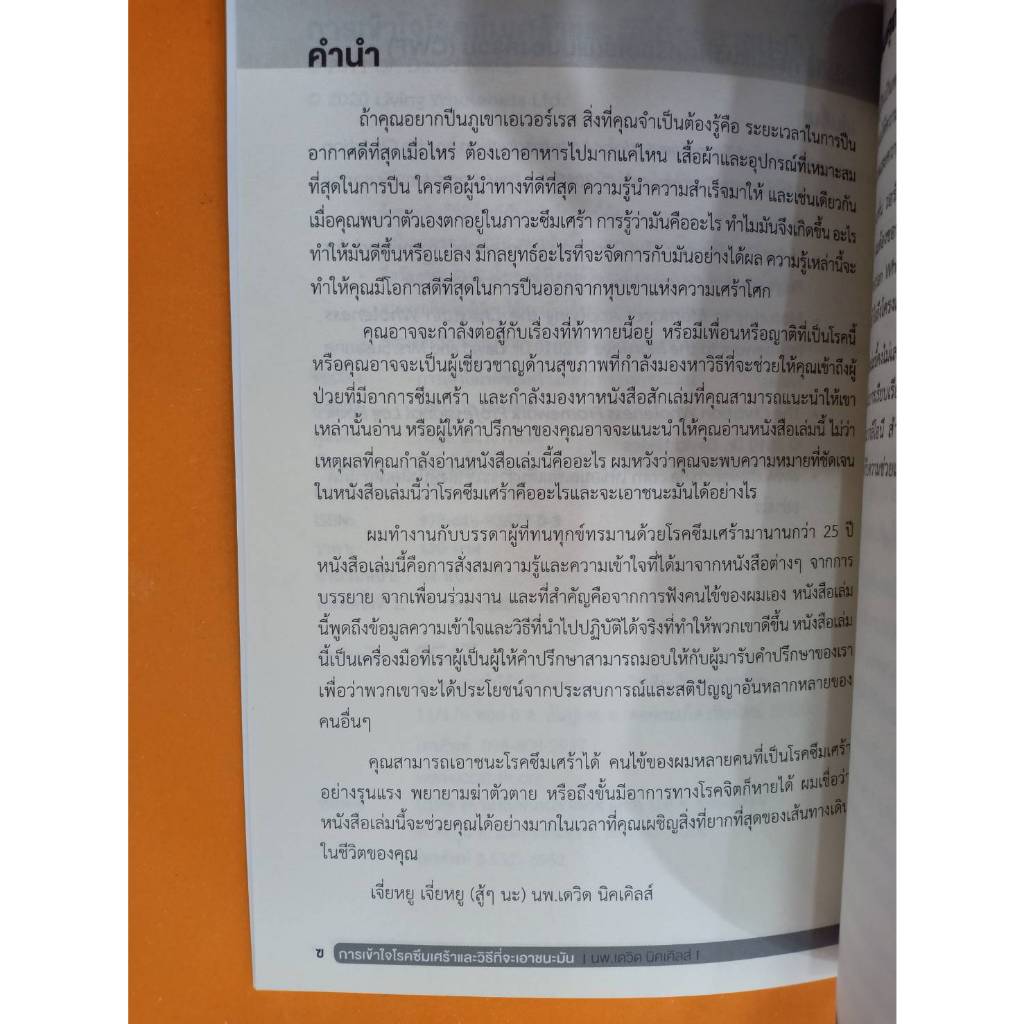 คำนำ
ถ้าคุณอยากปีนภูเขาเอเวอร์เรส สิ่งที่คุณจำเป็นต้องรู้คือ ระยะเวลาในการปีน
อากาศดีที่สุดเมื่อไหร่ ต้องเอาอาหารไปมากแค่ไหน เสื้อผ้าและอุปกรณ์ที่เหมาะสม
ที่สุดในการปีน ใครคือผู้นำทางที่ดีที่สุด ความรู้นำความสำเร็จมาให้ และเช่นเดียวกัน
เมื่อคุณพบว่าตัวเองตกอยู่ในภาวะซึมเศร้า การรู้ว่ามันคืออะไร ทำไมมันจึงเกิดขึ้น อะไร
ทำให้มันดีขึ้นหรือแย่ลง มีกลยุทธ์อะไรที่จะจัดการกับมันอย่างได้ผล ความรู้เหล่านี้จะ
ทำให้คุณมีโอกาสดีที่สุดในการปีนออกจากหุบเขาแห่งความเศร้าโศก
คุณอาจจะกำลังต่อสู้กับเรื่องที่ท้าทายนี้อยู่ หรือมีเพื่อนหรือญาติที่เป็นโรคนี้
หรือคุณอาจจะเป็นผู้เชี่ยวชาญด้านสุขภาพที่กำลังมองหาวิธีที่จะช่วยให้คุณเข้าถึงผู้
ป่วยที่มีอาการซึมเศร้า และกำลังมองหาหนังสือสักเล่มที่คุณสามารถแนะนำให้เขา
เหล่านั้นอ่าน หรือผู้ให้คำปรึกษาของคุณอาจจะแนะนำให้คุณอ่านหนังสือเล่มนี้ ไม่ว่า
เหตุผลที่คุณกำลังอ่านหนังสือเล่มนี้คืออะไร ผมหวังว่าคุณจะพบความหมายที่ชัดเจน
ในหนังสือเล่มนี้ว่าโรคซึมเศร้าคืออะไรและจะเอาชนะมันได้อย่างไร
ผมทำงานกับบรรดาผู้ที่ทนทุกข์ทรมานด้วยโรคซึมเศร้ามานานกว่า 25 ปี
หนังสือเล่มนี้คือการสั่งสมความรู้และความเข้าใจที่ได้มาจากหนังสือต่างๆ จากการ
บรรยาย จากเพื่อนร่วมงาน และที่สำคัญคือจากการฟังคนไข้ของผมเอง หนังสือเล่ม
นี้พูดถึงข้อมูลความเข้าใจและวิธีที่นำไปปฏิบัติได้จริงที่ทำให้พวกเขาดีขึ้น หนังสือเล่ม
นี้เป็นเครื่องมือที่เราผู้เป็นผู้ให้คำปรึกษาสามารถมอบให้กับผู้มารับคำปรึกษาของเรา
เพื่อว่าพวกเขาจะได้ประโยชน์จากประสบการณ์และสติปัญญาอันหลากหลายของ
คนอื่นๆ
คุณสามารถเอาชนะโรคซึมเศร้าได้ คนไข้ของผมหลายคนที่เป็นโรคซึมเศร้า
อย่างรุนแรง พยายามฆ่าตัวตาย หรือถึงขั้นมีอาการทางโรคจิตก็หายได้ ผมเชื่อว่า
หนังสือเล่มนี้จะช่วยคุณได้อย่างมากในเวลาที่คุณเผชิญสิ่งที่ยากที่สุดของเส้นทางเดิน
ในชีวิตของคุณ
เจี่ยหยู เจี่ยหยู (สู้ๆ นะ) นพ.เดวิด นิคเคิลส์
ฃ การเข้าใจโรคซึมเศร้าและวิธีที่จะเอาชนะมัน | นพ.เดวิด นิคเคิลส์ |